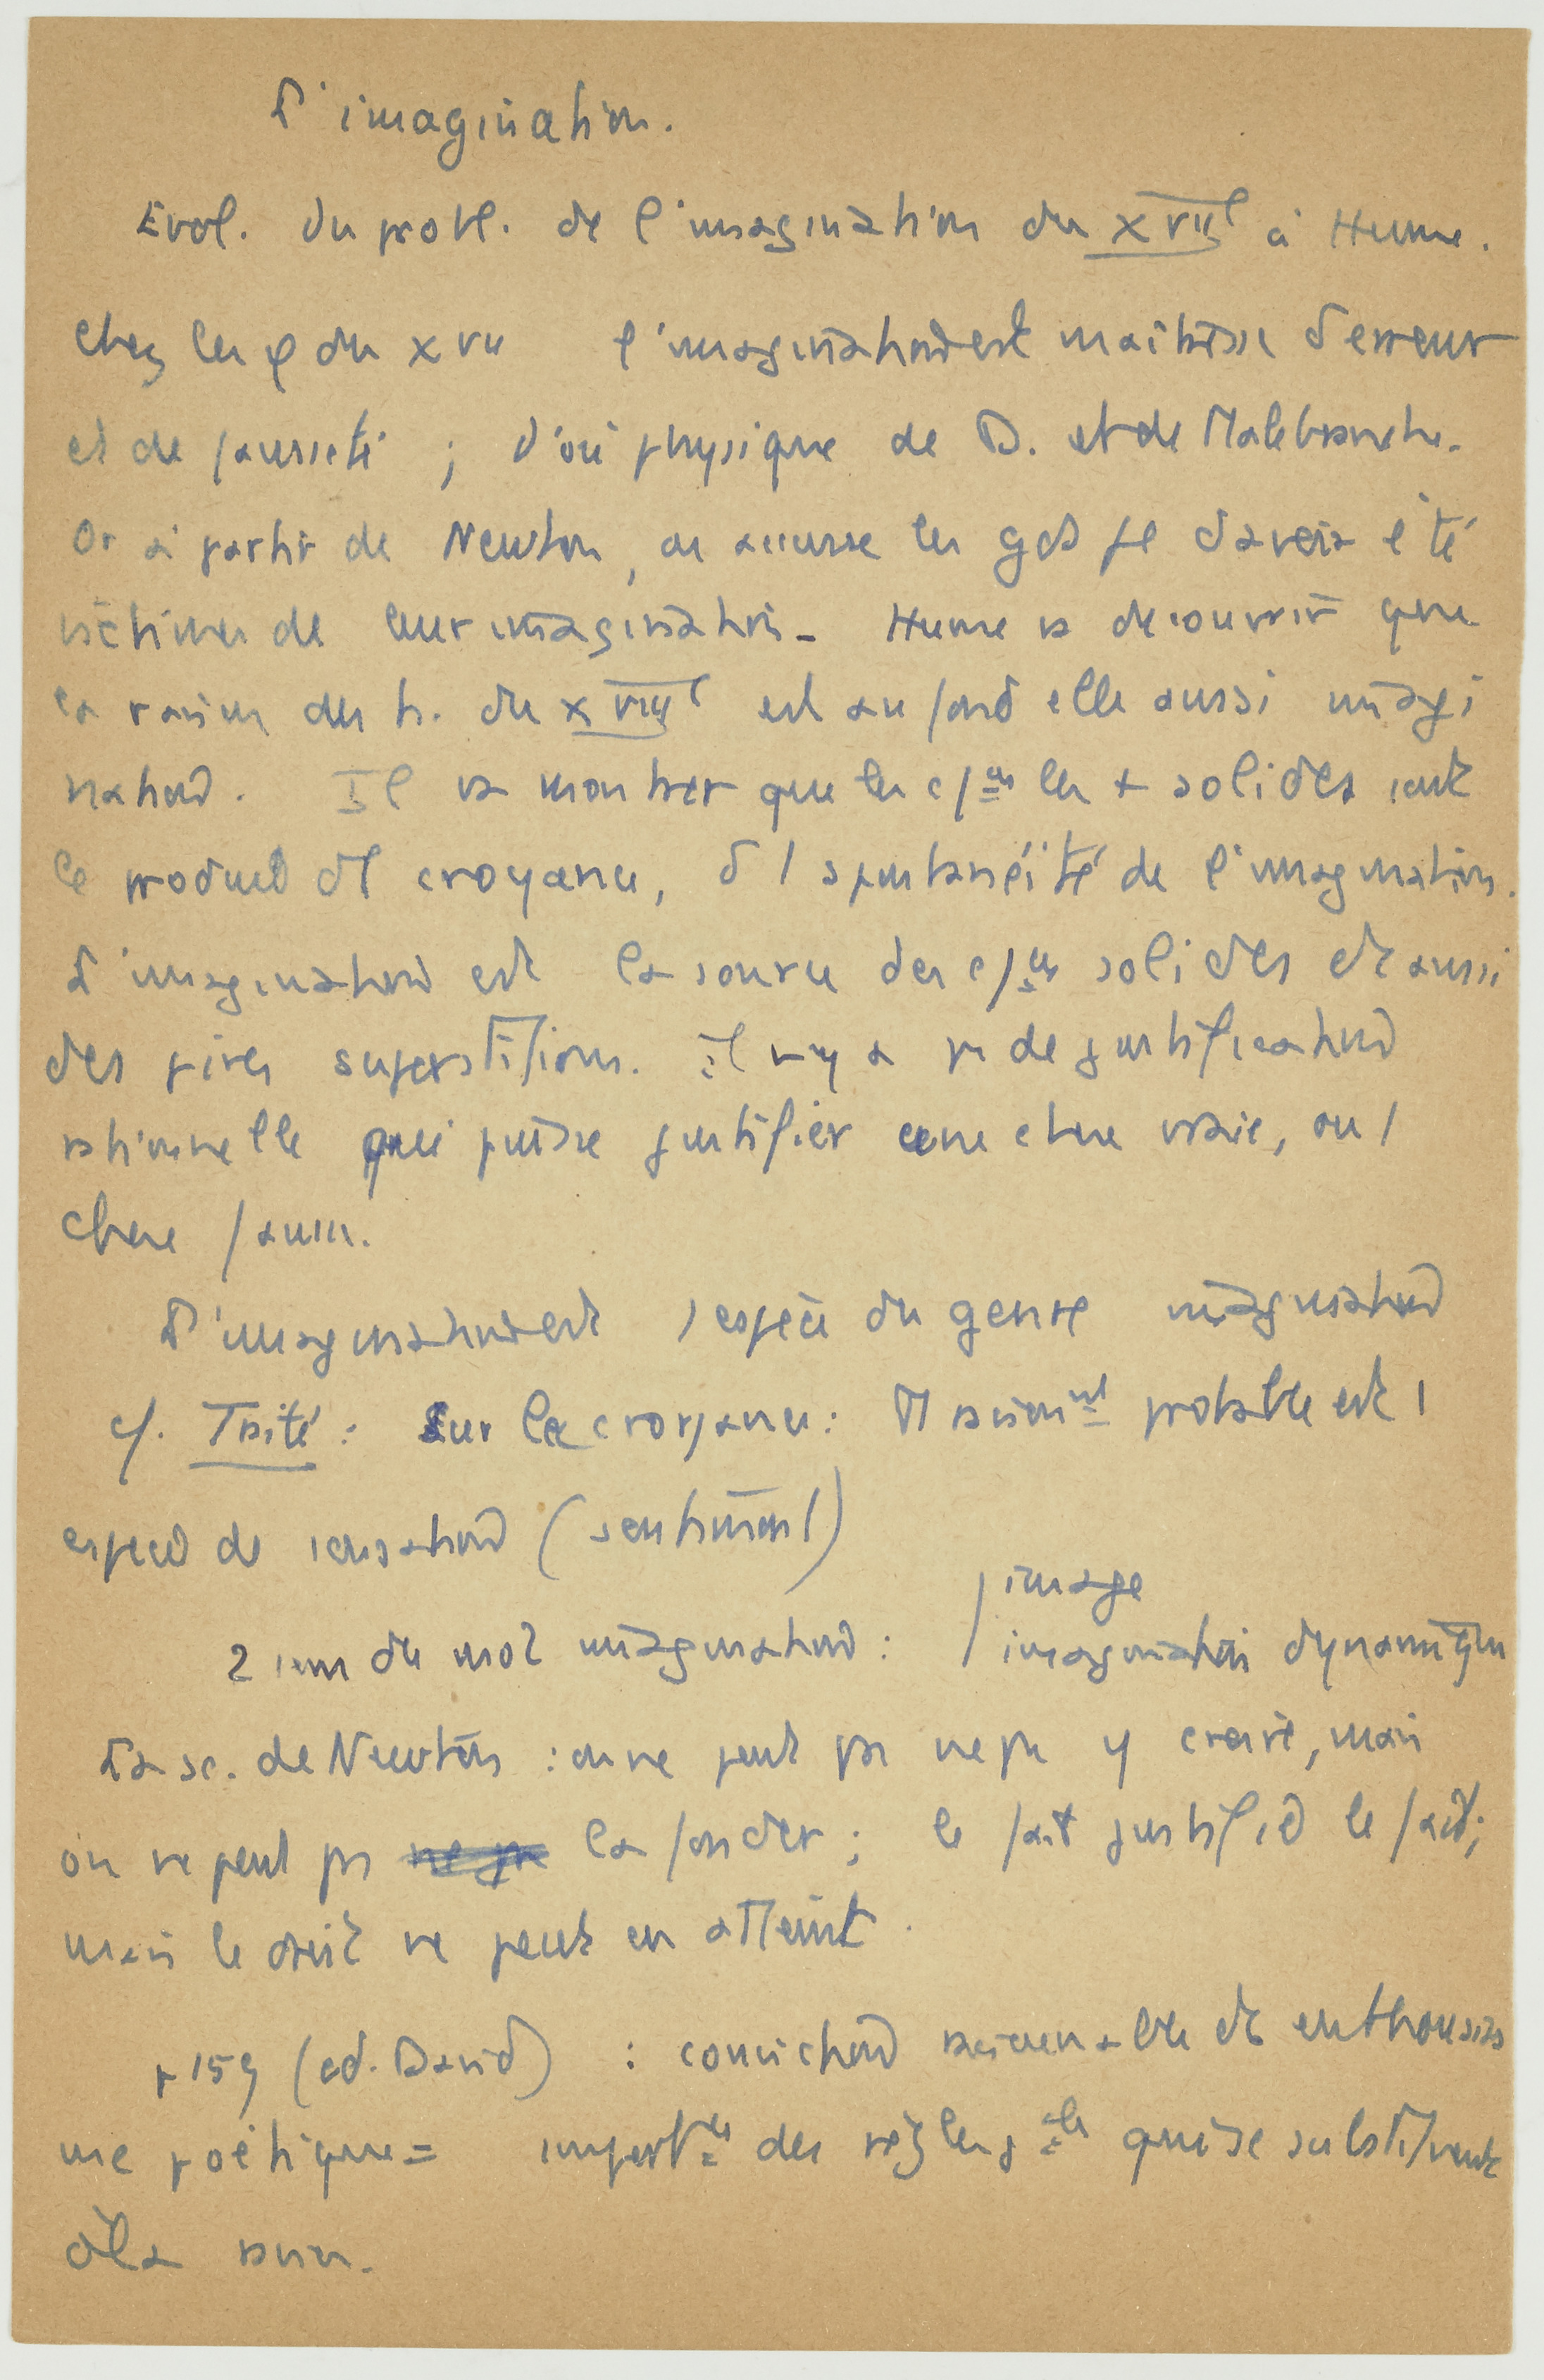 L'imagination.
Evol. du probl. de l'imagination du XVIIe à Hume.
Chez les φ du XVII l'imagination est maîtresse d'erreur
et de fausseté ; d'où physique de D. et de Malebranche.
Or à partir de Newton, on accuse les gds φ d'avoir été
victimes de leur imagination. Hume va découvrir que
la raison des h. du XVIIIe est au fond elle aussi imagi
nation. Il va montrer que les c/ces les + solides sont
le produit d'1 croyance, d'1 spontanéité de l'imagination.
L'imagination est la source des c/ces solides et aussi
des pires superstitions. il n'y a pas de justification
rationnelle qui puisse justifier une chose vraie, ou 1
chose fausse.
L'imagination est 1 espèce du genre imagination
cf. Traité : Sur la croyance : Tt raisonnt probable est 1
espèce de sensation (sentiment)
2 sens du mot imagination : / image
/ imagination dynamique
La sc. de Newton : on ne peut pas ne pas y croire, mais
on ne peut pas la fonder ; le fait justifie le fait ;
mais le droit ne peut en atteint.
p 159 (ed. David) : conviction et enthousias
me poétique = importce des règles gales qui se substituent
à la raison.